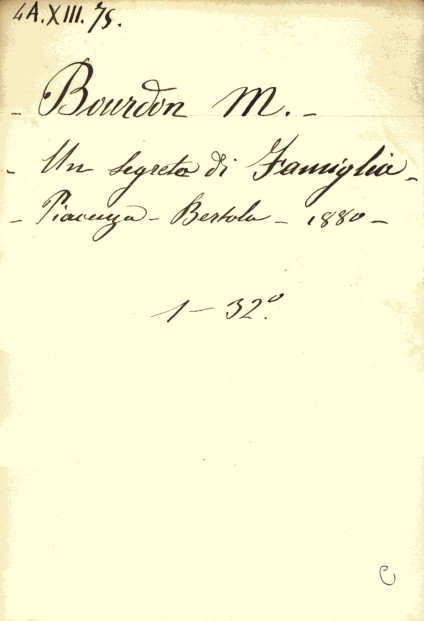 4A.XIII.75.
- Bourdon M. -
- Un segreto di Famiglia -
- Piacenza - Bertola - 1880 -
1 - 32º.
C